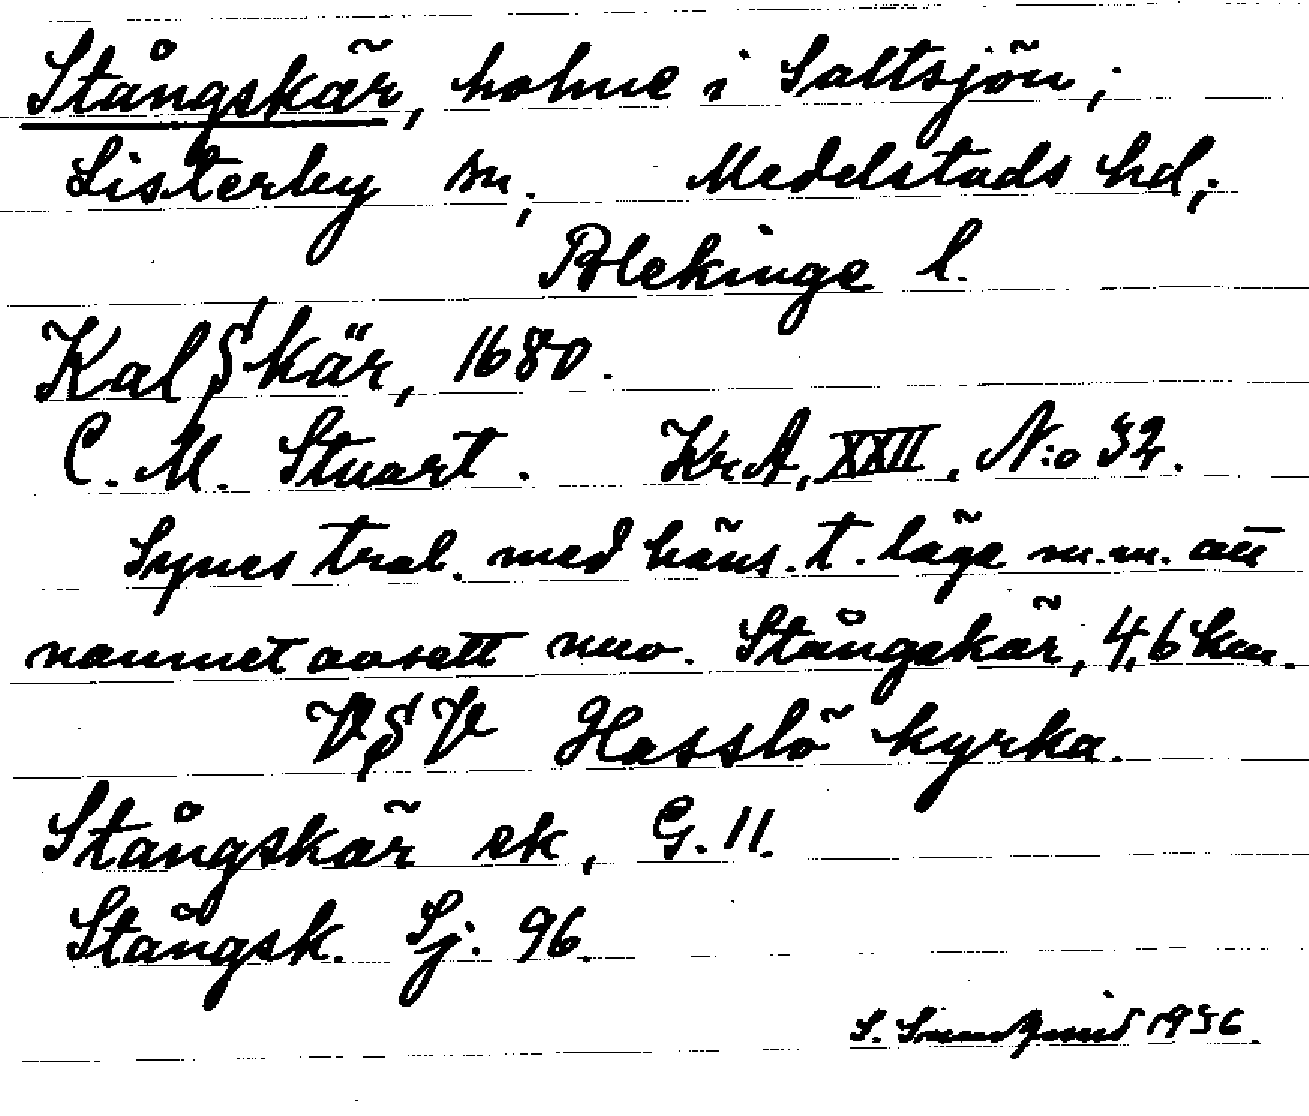 Stångskär, holme i Saltsjön;
Listerby sn; Medelstads hd;
Blekinge l.
Kalfskär, 1680.
C. M. Stuart. KrA, XXII, N:o 32.
Synes trol. med häns. t. läge m.m. att
namnet avsett nuv. Stångskär, 4,6 km.
VSV Hasslö kyrka.
Stångskär ek, G. 11.
Stångsk. Sj. 96.
S. 1936.